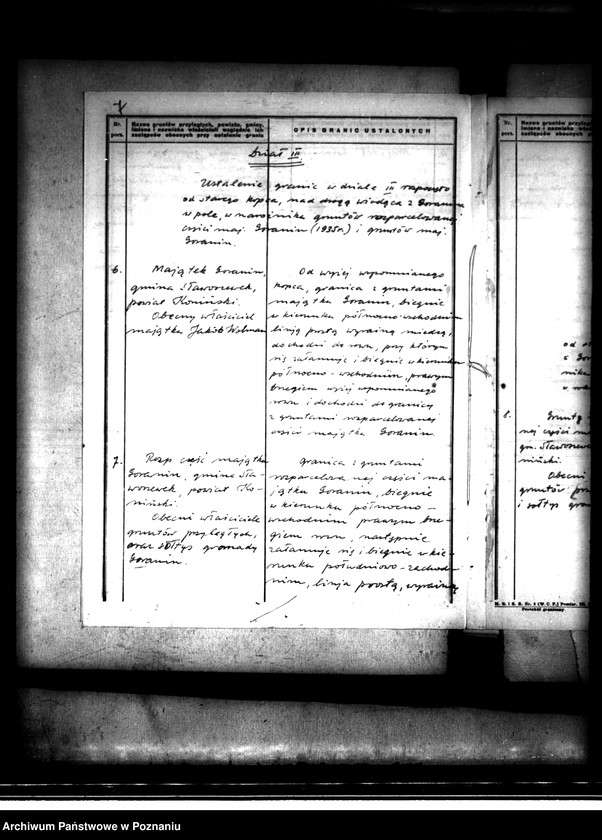 Nr. porz.
Nazwa gruntów przyległych, powiatu, gminy,
imiona i nazwiska właścicieli względnie ich
zastępców obecnych przy ustalaniu granic
OPIS GRANIC USTALONYCH
Dział III
Ustalenie granic w dziale III rozpoczęto
od starego kopca, nad drogą wiodącą z Goranina
w pole, w narożniku gruntów rozparcelowanej
części maj. Goranin (1935r.) i gruntów maj.
Goranin.
6.
Majątek Goranin,
gmina Sławoszewek,
powiat Koniński.
Obecny właściciel
majątku Jakób
Od wyżej wspomnianego
kopca, granica z gruntami
majątku Goranin, biegnie
w kierunku północno-wschodnim
linją prostą wyraźną miedzą,
dochodzi do rowu, przy którym
się załamuje i biegnie w kierunku
północno-wschodnim, prawym
brzegiem wyżej wspomnianego
rowu i dochodzi do granicy
z gruntami rozparcelowanej
części majątku Goranin
7.
Rozp. część majątku
Goranin, gmina Sła-
woszewek, powiat Ko-
niński.
Obecni właściciele
gruntów przyległych,
oraz sołtys gromady
Goranin.
Granica z gruntami
rozparcelowanej części ma-
jątku Goranin, biegnie
w kierunku północno-
wschodnim prawym brze-
giem rowu, następnie
załamuje się i biegnie w kie-
runku południowo-zachod-
nim, linją prostą, wyraźną
Nr. porz.
Nazwa gruntów przyległ
imiona i nazwiska właści
zastępców obecnych przy
od s
z Gor
nika
8.
Grunty
nej części m
gm. Sławoszew
niński.
Obecni
gruntów prz
i sołtys gro
M. R. i R. R. Nr. 4 (W. C. P.) Pomiar.
Protokół graniczny
Archiwum Państwowe w Poznaniu